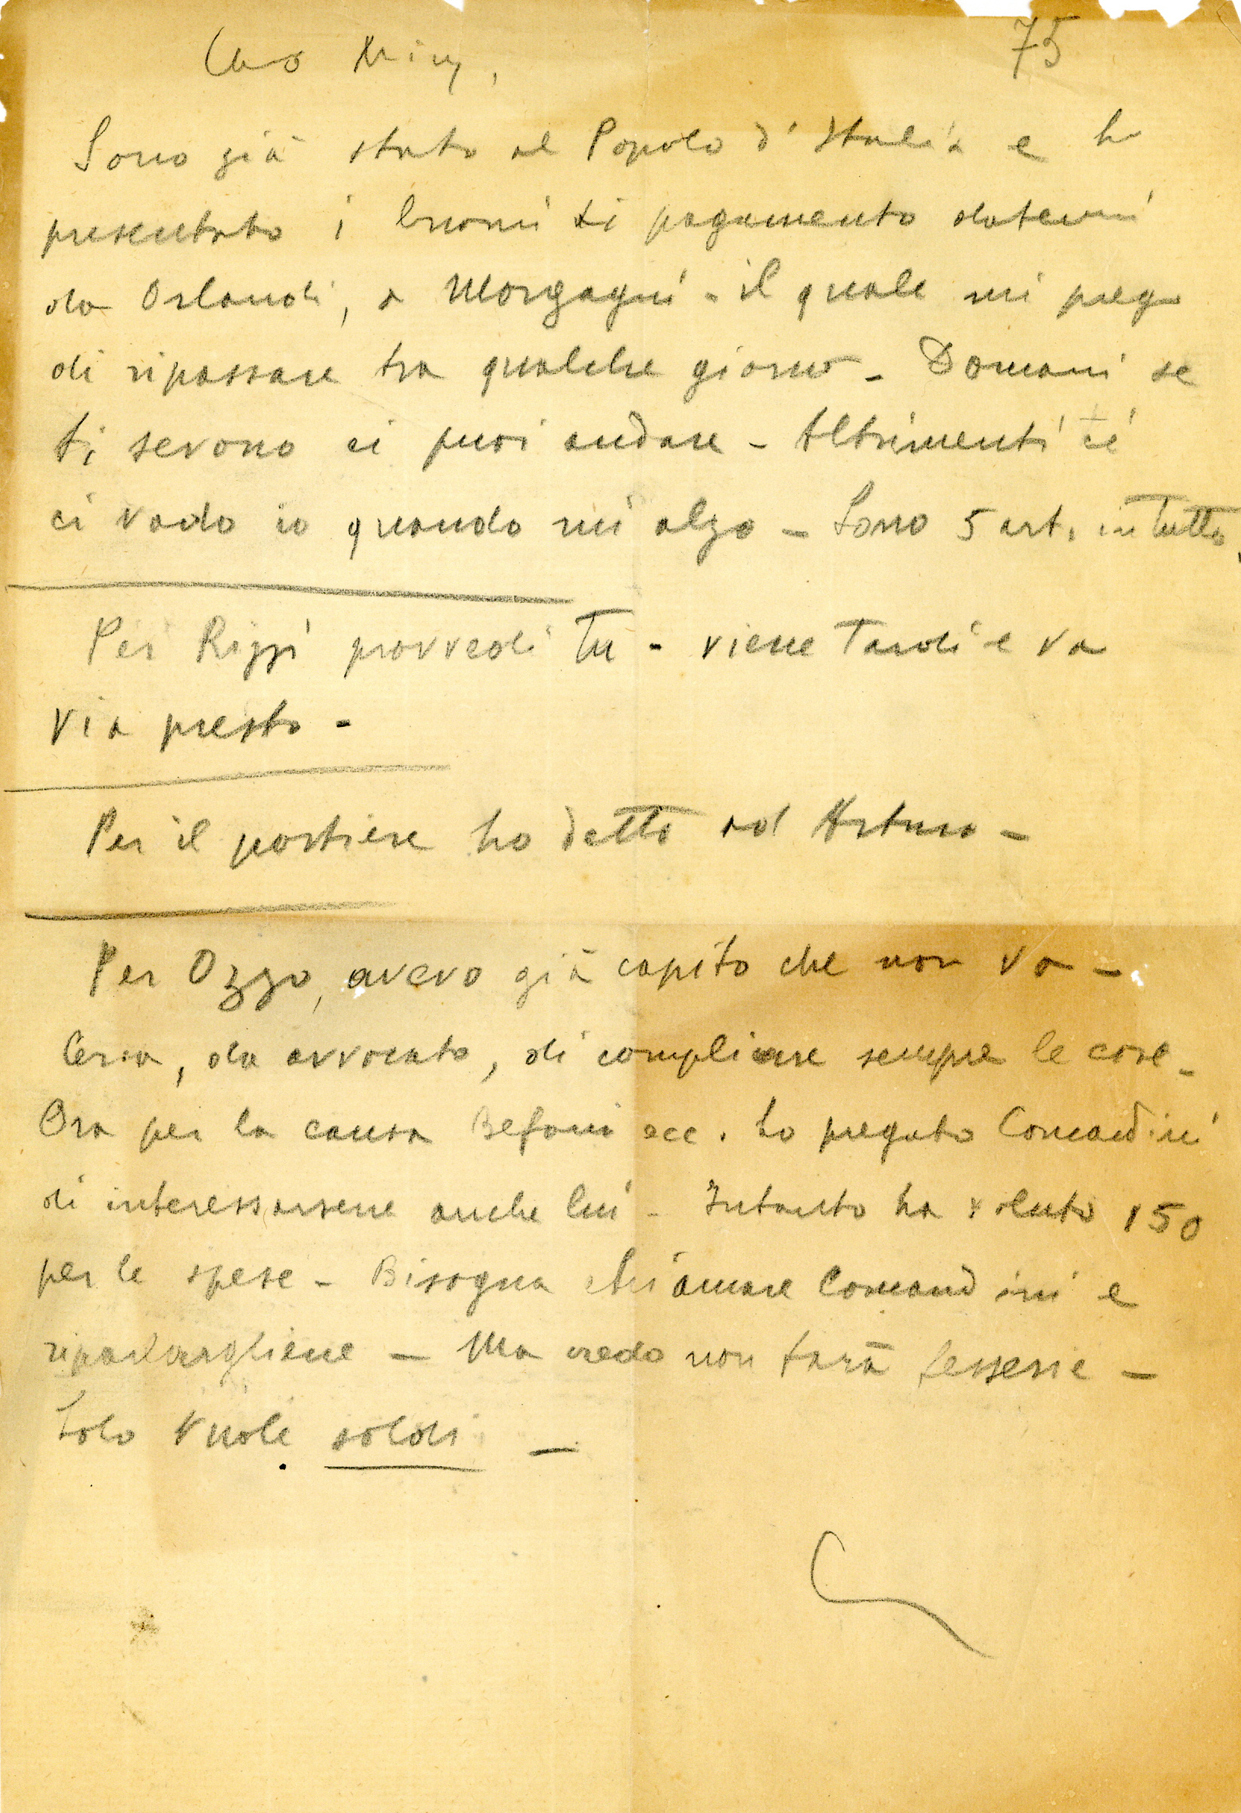 Caro                    75
Sono già stato al Popolo d'Italia e ho
presentato i buoni di pagamento datemi
da Orlandi, a Morgagni - il quale mi prega
di ripassare tra qualche giorno - Domani se
ti sevono ci puoi andare - Altrimenti
ci vado io quando mi alzo - Sono 5 art. in tutto.
Per Rizzi provvedi tu - viene tardi e va
via presto -
Per il portiere ho detto ad Arturo -
Per Ozzo, avevo già capito che non va -
Cerca, da avvocato, di complicare sempre le cose -
Ora per la causa Befani ecc. ho pregato Comandini
di interessarsene anche lui - Intanto ha voluto 150
per le spese - Bisogna chiamare Comandini e
riparlargliene - Ma credo non farà fesserie -
Solo vuole soldi -